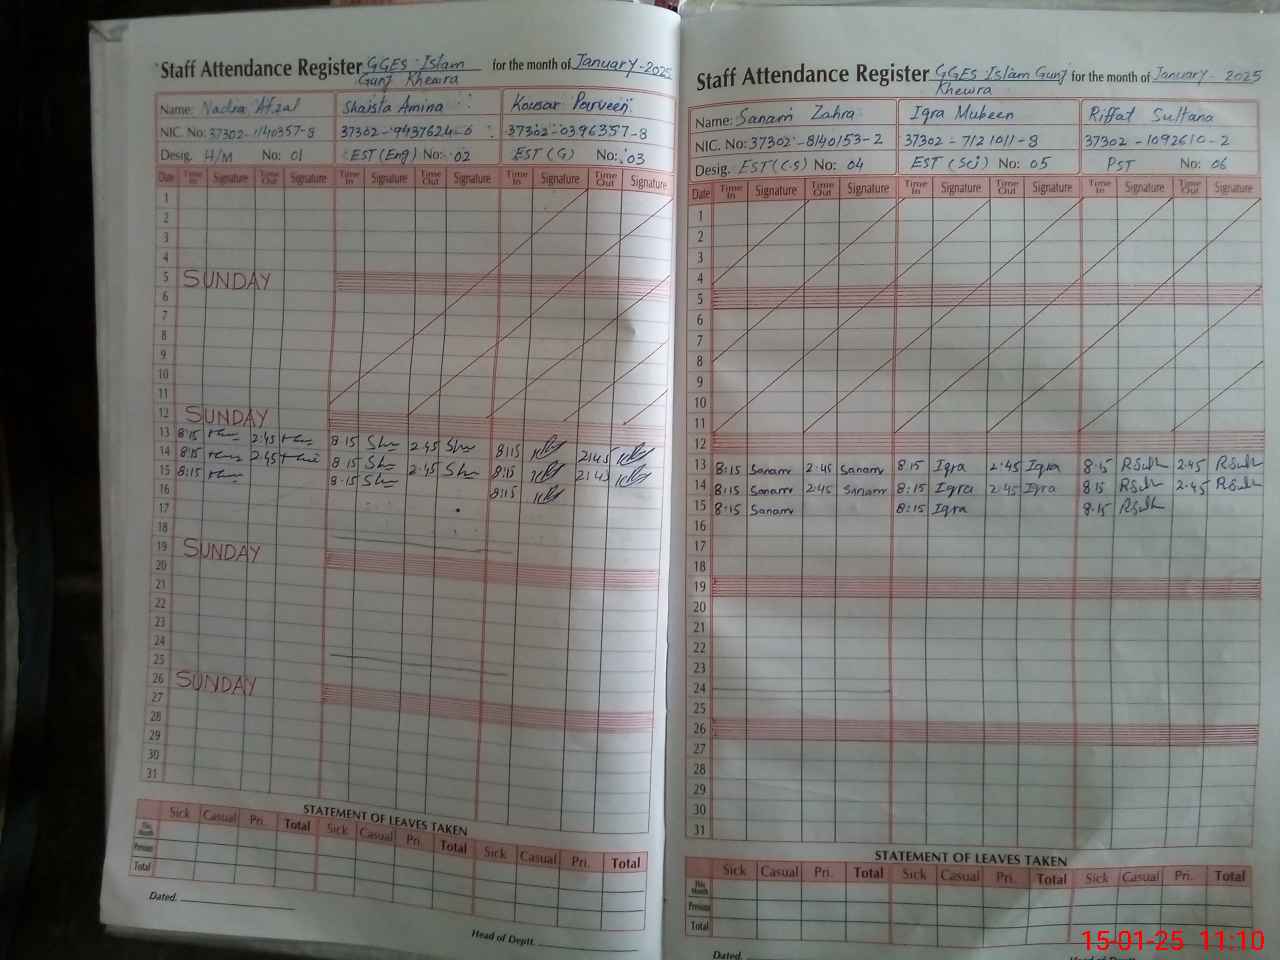 Staff Attendance Register GGES Islam Gunj Khewra for the month of January-2025
Name: Nadra Afzal Shaista Amina Kousar Parveen
NIC. No: 37302-1140357-8 37302-9437624-6 37302-0396357-8
Desig. H/M No: 01 EST (Eng) No: 02 EST (G) No: 03
Date Time In Signature Time Out Signature Time In Signature Time Out Signature Time In Signature Time Out Signature
1
2
3
4
5 SUNDAY
6
7
8
9
10
11
12 SUNDAY
13 8:15 2:45 8:15 2:45 8:15 2:45
14 8:15 2:45 8:15 2:45 8:15 2:45
15 8:15 8:15 8:15
16
17
18
19 SUNDAY
20
21
22
23
24
25
26 SUNDAY
27
28
29
30
31
STATEMENT OF LEAVES TAKEN
Sick Casual Pri. Total Sick Casual Pri. Total Sick Casual Pri. Total
This Month
Previous
Total
Dated.
Head of Deptt.
Staff Attendance Register GGES Islam Gunj Khewra for the month of January-2025
Name: Sanam Zahra Iqra Mubeen Riffat Sultana
NIC. No: 37302-8140153-2 37302-7121011-8 37302-1092610-2
Desig. EST (C-S) No: 04 EST (Sci) No: 05 PST No: 06
Date Time In Signature Time Out Signature Time In Signature Time Out Signature Time In Signature Time Out Signature
1
2
3
4
5
6
7
8
9
10
11
12
13 8:15 Sanam 2:45 Sanam 8:15 Iqra 2:45 Iqra 8:15 2:45
14 8:15 Sanam 2:45 Sanam 8:15 Iqra 2:45 Iqra 8:15 2:45
15 8:15 Sanam 8:15 Iqra 8:15
16
17
18
19
20
21
22
23
24
25
26
27
28
29
30
31
STATEMENT OF LEAVES TAKEN
Sick Casual Pri. Total Sick Casual Pri. Total Sick Casual Pri. Total
This Month
Previous
Total
Dated.
15-01-25 11:10